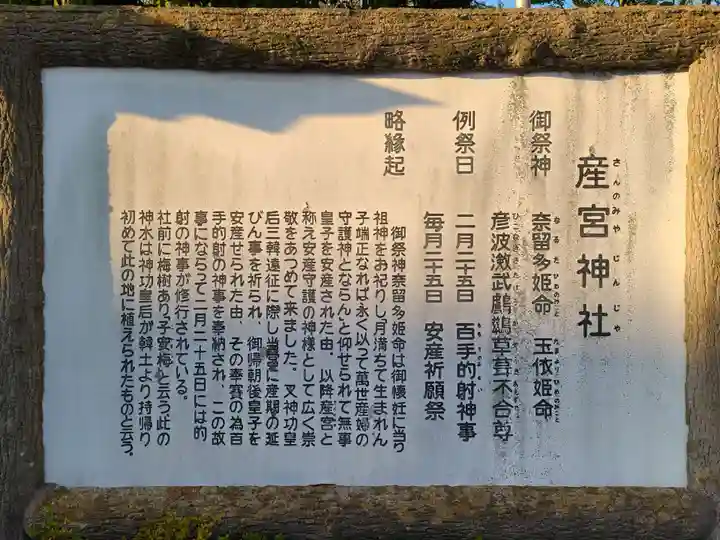 産宮神社
さんのみやじんじゃ
御祭神 奈留多姫命 玉依姫命
彦波瀲武鸕鶿草葺不合尊
例祭日 二月二十五日 百手的射神事
毎月二十五日 安産祈願祭
略縁起
御祭神奈留多姫命は御懐妊に当り
祖神をお祀りし月満ちて生まれん
子端正なれば永く以って萬世産婦の
守護神とならんと仰せられて無事
皇子を安産された由、以降産宮と
称え安産守護の神様として広く崇
敬をあつめて来ました。又神功皇
后三韓遠征に際し当宮に産期の延
びん事を祈られ、御帰朝後皇子を
安産せられた由、その奉賽の為百
手的射の神事を奉納され、この故
事にならって二月二十五日には的
射の神事が修行されている。
社前に梅樹あり子安梅と云う此の
神水は神功皇后が韓土より持帰り
初めて此の地に植えられたものと云う、